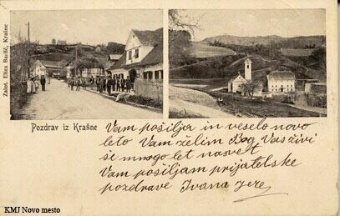 Založ. Eliza Burlič, Krašne
Pozdrav iz Krašne
Vam pošilja in veselo novo
leto Vam želim Bog Vas živi
še mnogo let nasvet
Vam pošiljam prijatelske
pozdrave Ivana Jere,
KMJ Novo mesto